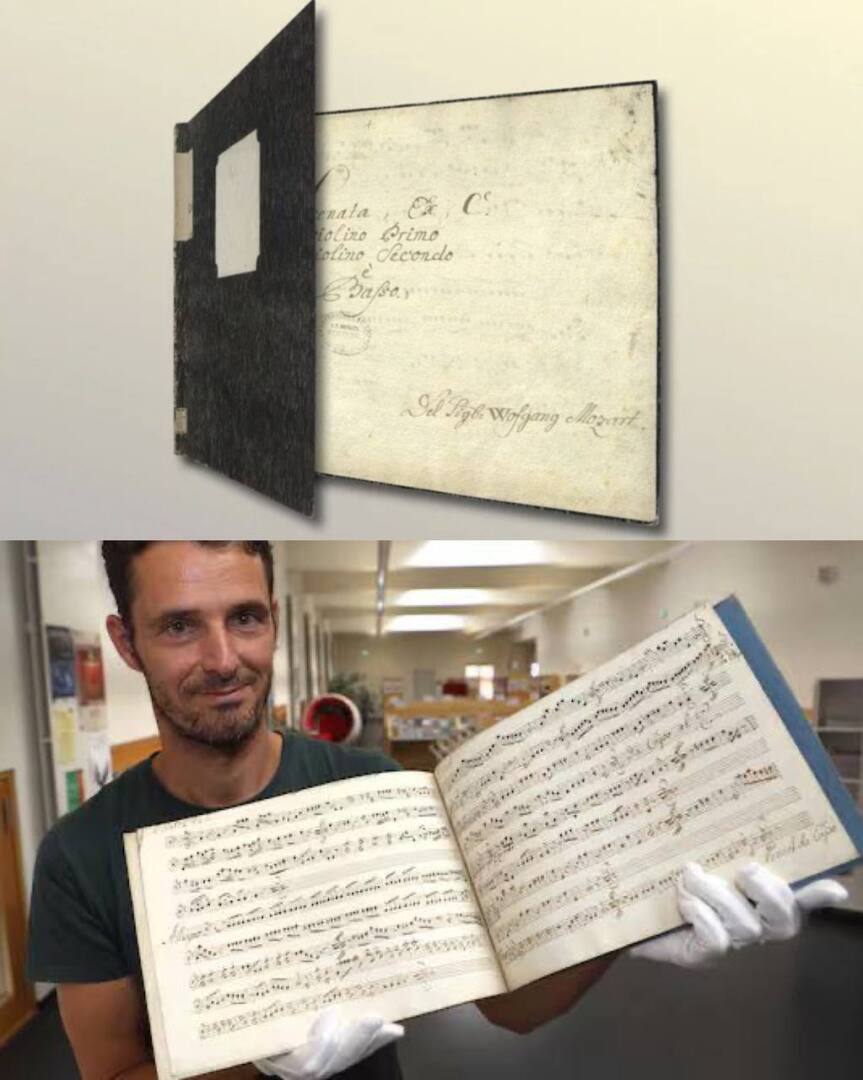 enata, Ex, C.
iolino Primo
iolino Secondo
è
Baſso.
Del Wofgang Mozart.
Allegro
Da Capo
da Capo